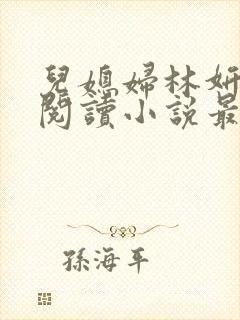 兒媳婦林妍
閱讀小說最
孫海平